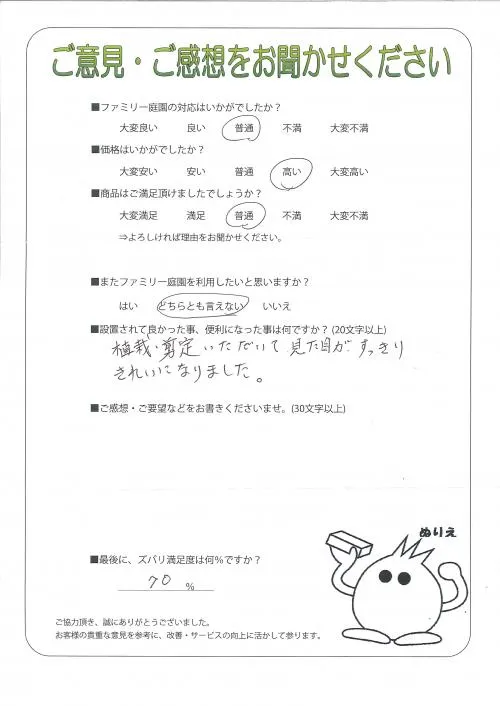 ご意見・ご感想をお聞かせください
■ファミリー庭園の対応はいかがでしたか？
大変良い 良い 普通 不満 大変不満
■価格はいかがでしたか？
大変安い 安い 普通 高い 大変高い
■商品はご満足頂けましたでしょうか？
大変満足 満足 普通 不満 大変不満
⇒よろしければ理由をお聞かせください。
■またファミリー庭園を利用したいと思いますか？
はい どちらとも言えない いいえ
■設置されて良かった事、便利になった事は何ですか？(20文字以上)
植栽・剪定いただいて見た目がすっきり
きれいになりました。
■ご感想・ご要望などをお書きくださいませ。(30文字以上)
ぬりえ
■最後に、ズバリ満足度は何％ですか？
70 ％
ご協力頂き、誠にありがとうございました。
お客様の貴重な意見を参考に、改善・サービスの向上に活かして参ります。